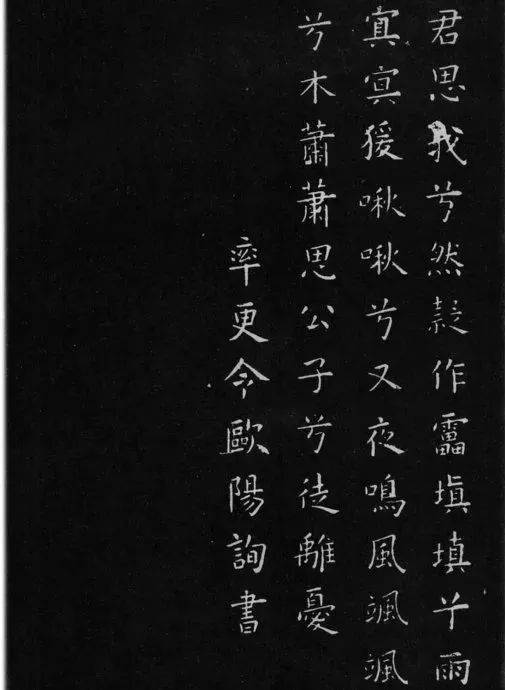 君思我兮然疑作靁填填兮雨
冥冥猨啾啾兮又夜鳴風颯颯
兮木蕭蕭思公子兮徒離憂
率更令歐陽詢書